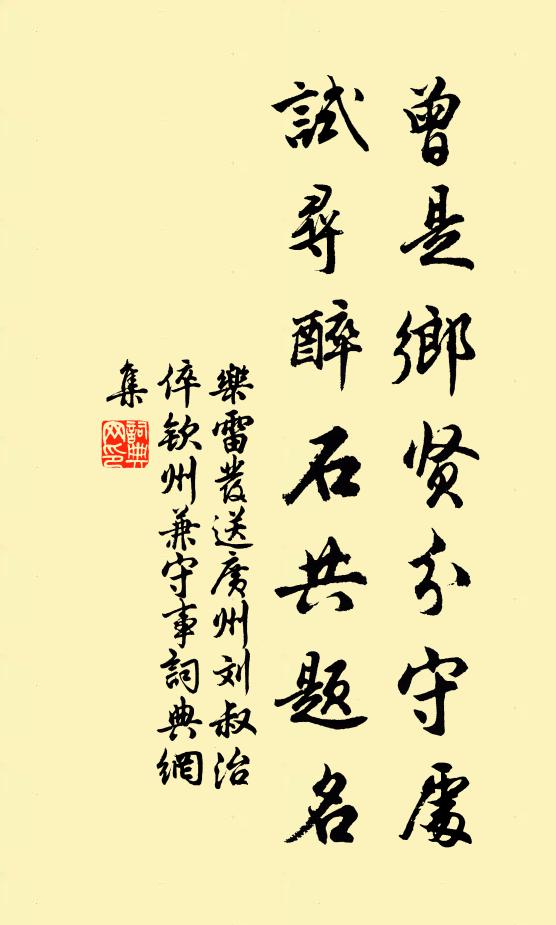 曾是鄉贤分守處
試尋醉石共题名
樂雷發送廣州刘叔治
倅欽州兼守事詞典網
集
詞典
网印